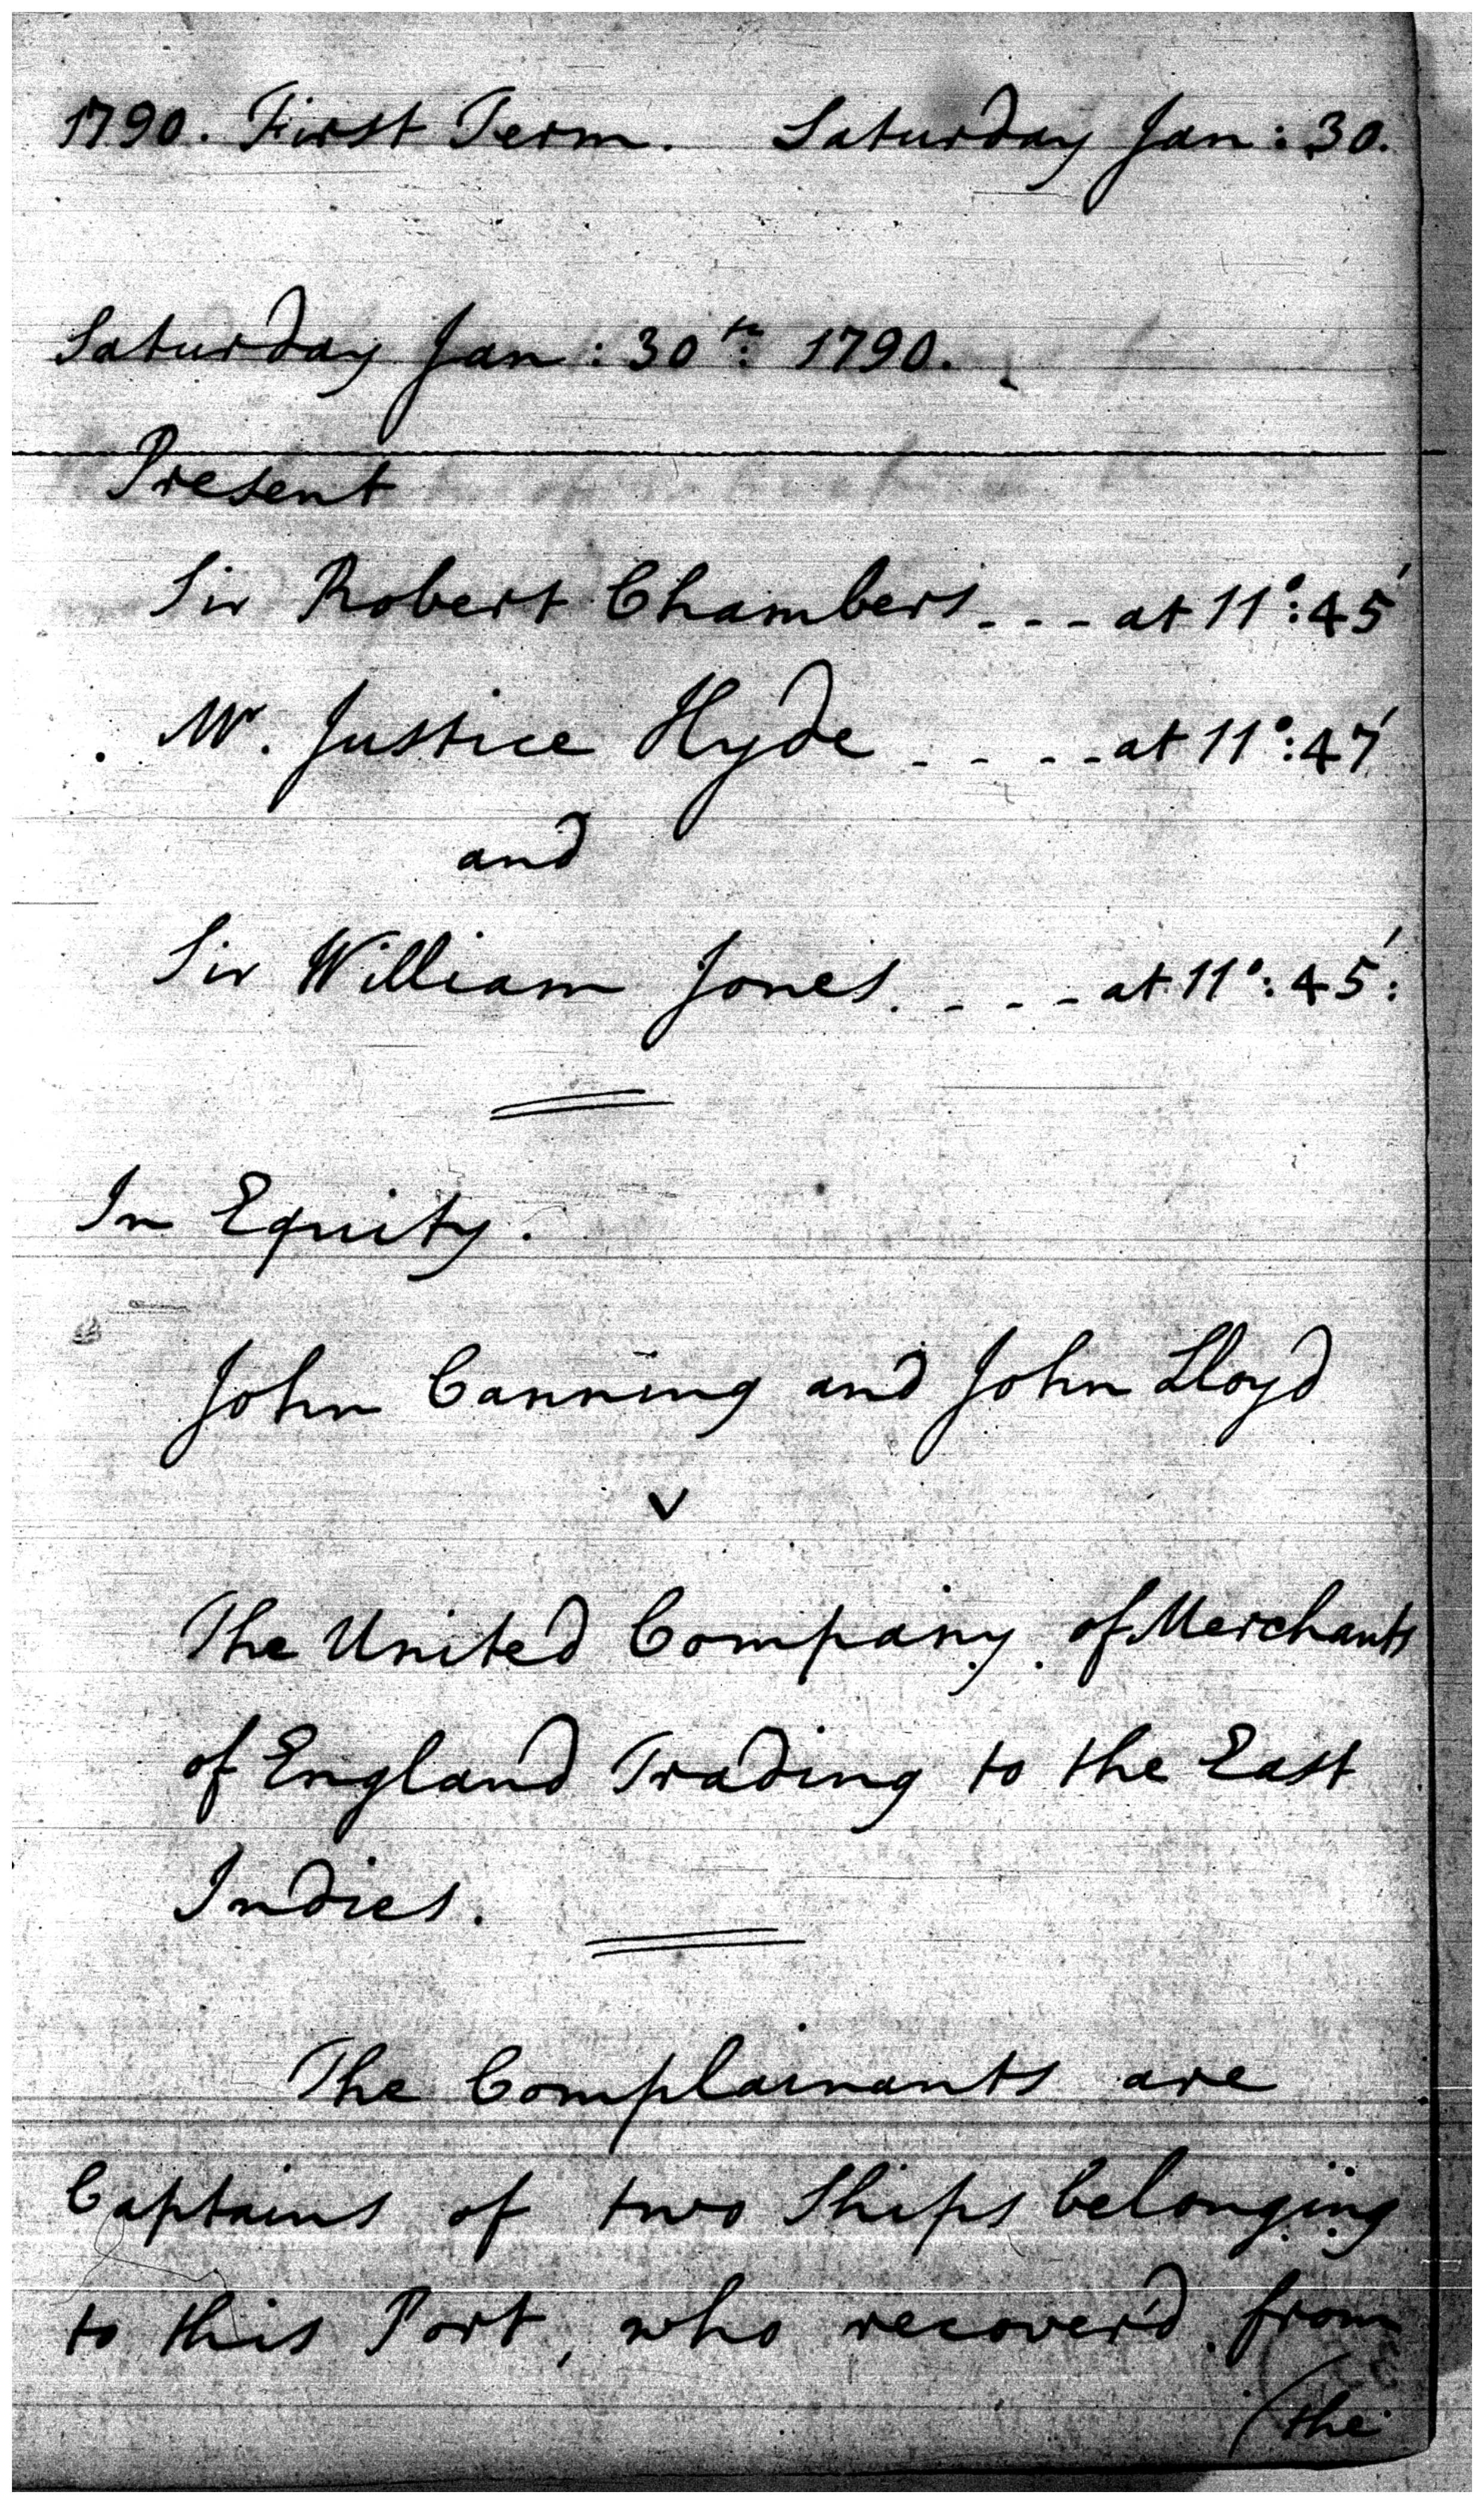 1790. First Term. Saturday Jan: 30.
Saturday Jan: 30th: 1790.
Present
Sir Robert Chambers - - - at 11°:45'
Mr. Justice Hyde - - - - at 11°:47'
and
Sir William Jones. - - - at 11°:45':
In Equity.
John Canning and John Lloyd
v
The United Company of Merchants
of England Trading to the East
Indies.
The Complainants are
Captains of two Ships belonging
to this Port, who recover'd from
(the